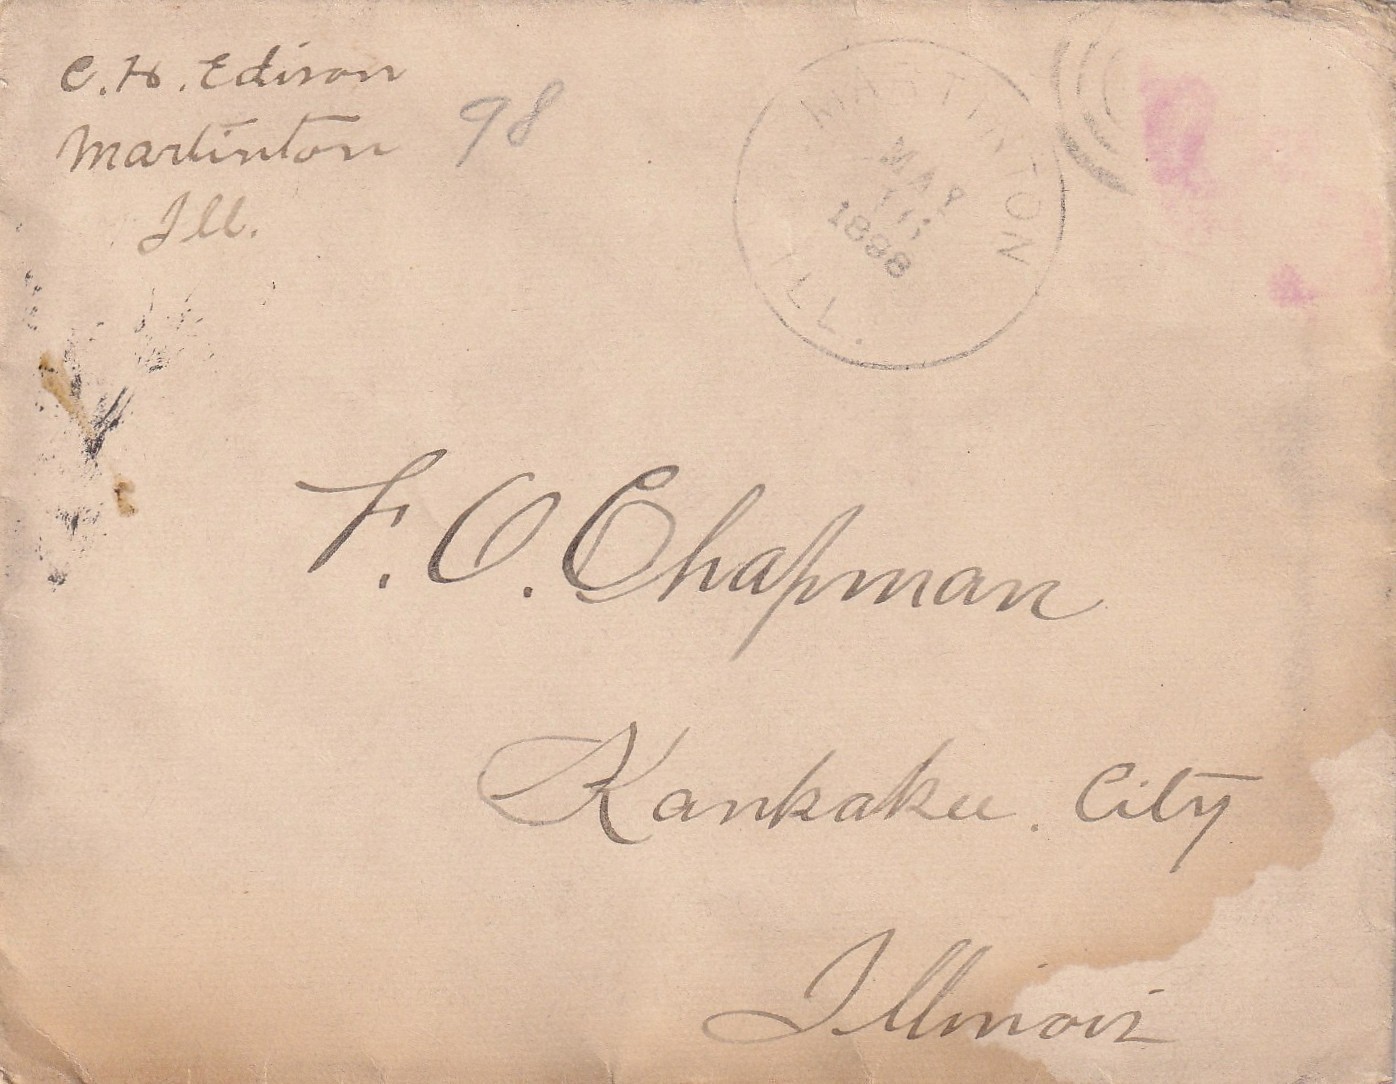 C. H. Edison
Martinton
Ill.
98
MARTINTON
MAR
1898
ILL.
F. O. Chapman
Kankakee. City
Illinois